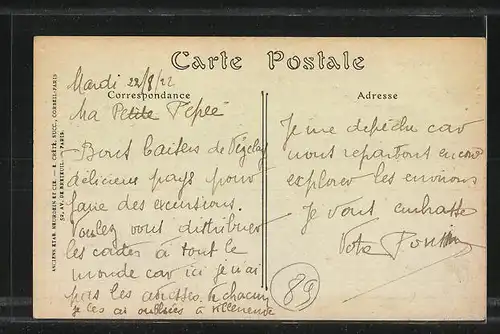 Carte Postale
Correspondance
Adresse
Mardi 22/8/22
Ma Petite Pépée
Bons baisers de Vézelay
délicieux pays pour
faire des excursions.
Voulez vous distribuer
les cartes à tout le
monde car ici je n'ai
pas les adresses de chacun
je les ai oubliées à Villeneuve
Je me dépêche car
nous repartons encore
explorer les environs
Je vous embrasse
Votre
89
ANCIENS ETAB. NEURDEIN ET CIE. — E. CRÉTÉ, SUCC., CORBEIL-PARIS
52, AV. DE BRETEUIL. — PARIS.